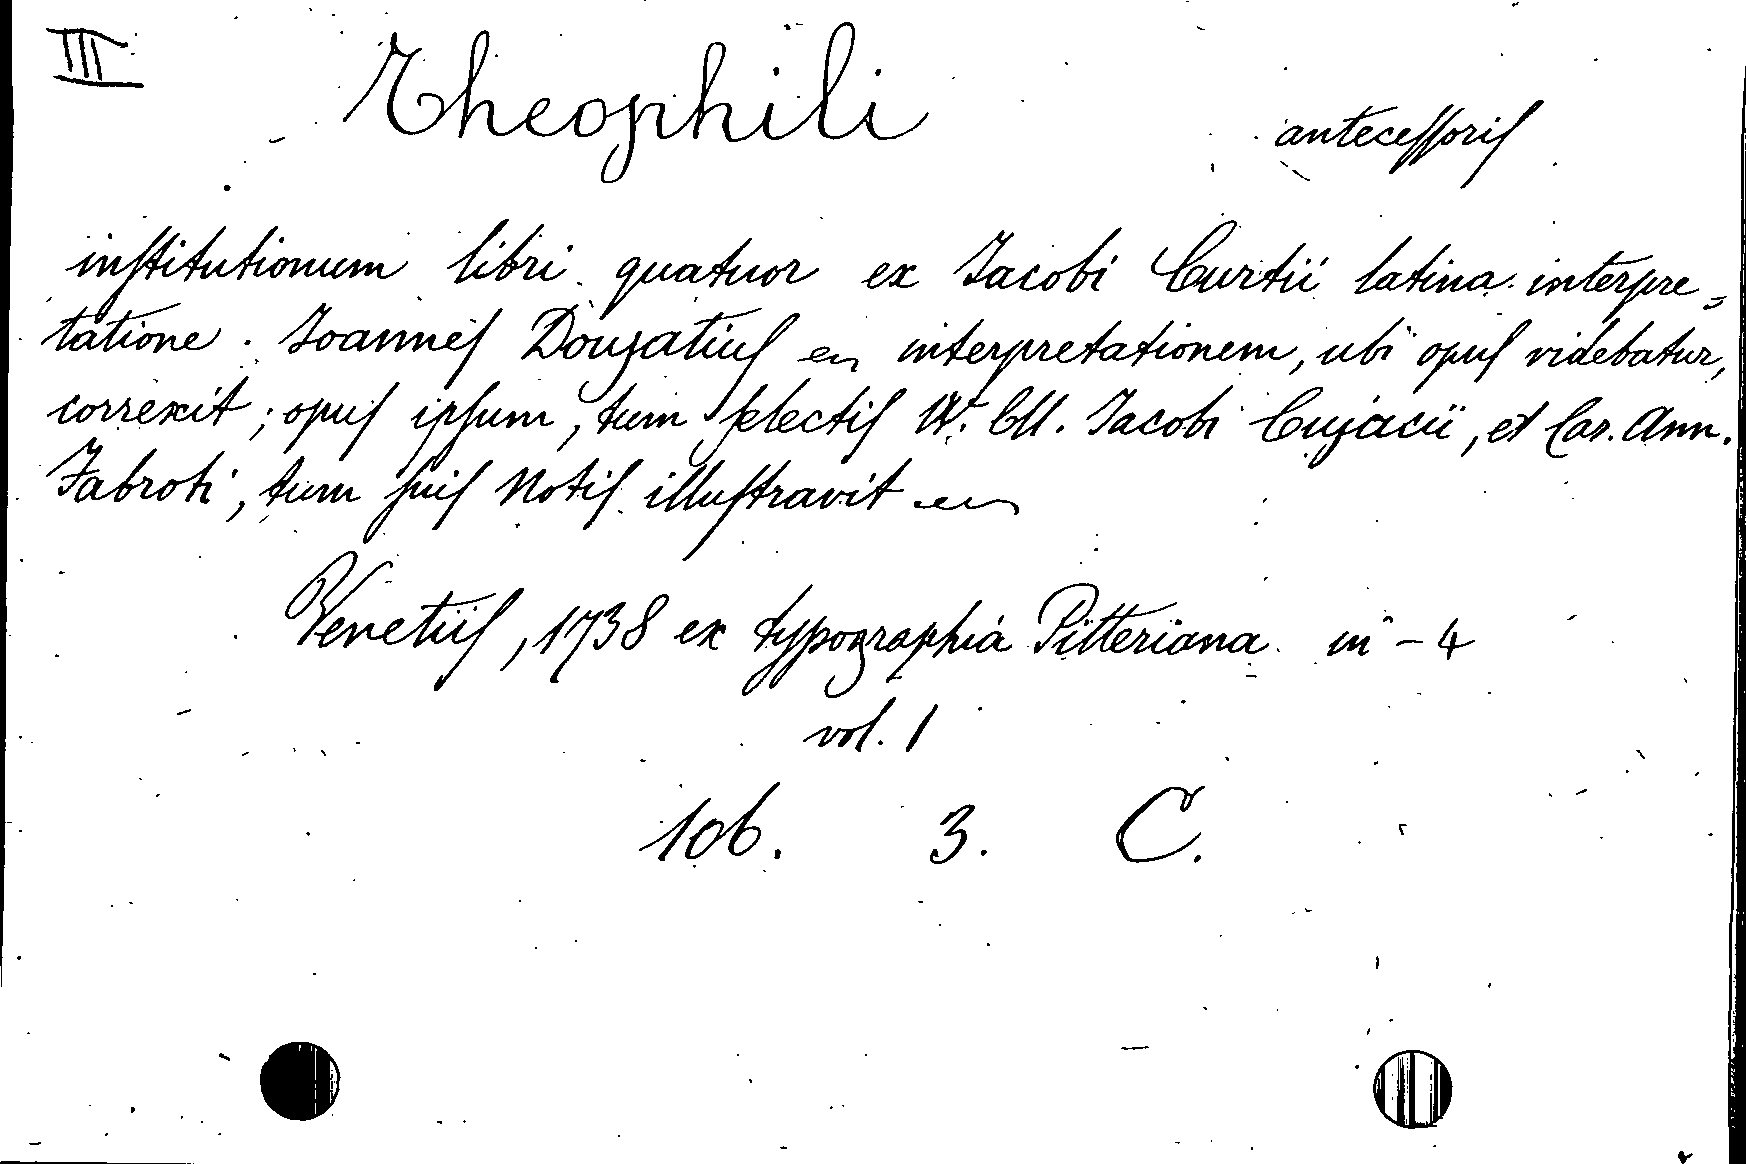 III
Theophili antecessoris
institutionum libri quatuor ex Jacobi Curtii latina interpre=
tatione. Joannes Doujatius interpretationem, ubi opus videbatur,
correxit; opus ipsum, tum selectis VV. Cll. Jacobi Cujacii, et Car. Ann.
Fabroti, tum suis Notis illustravit
Venetiis, 1738 ex typographia Pitteriana in-4
vol. 1
106. 3. C.